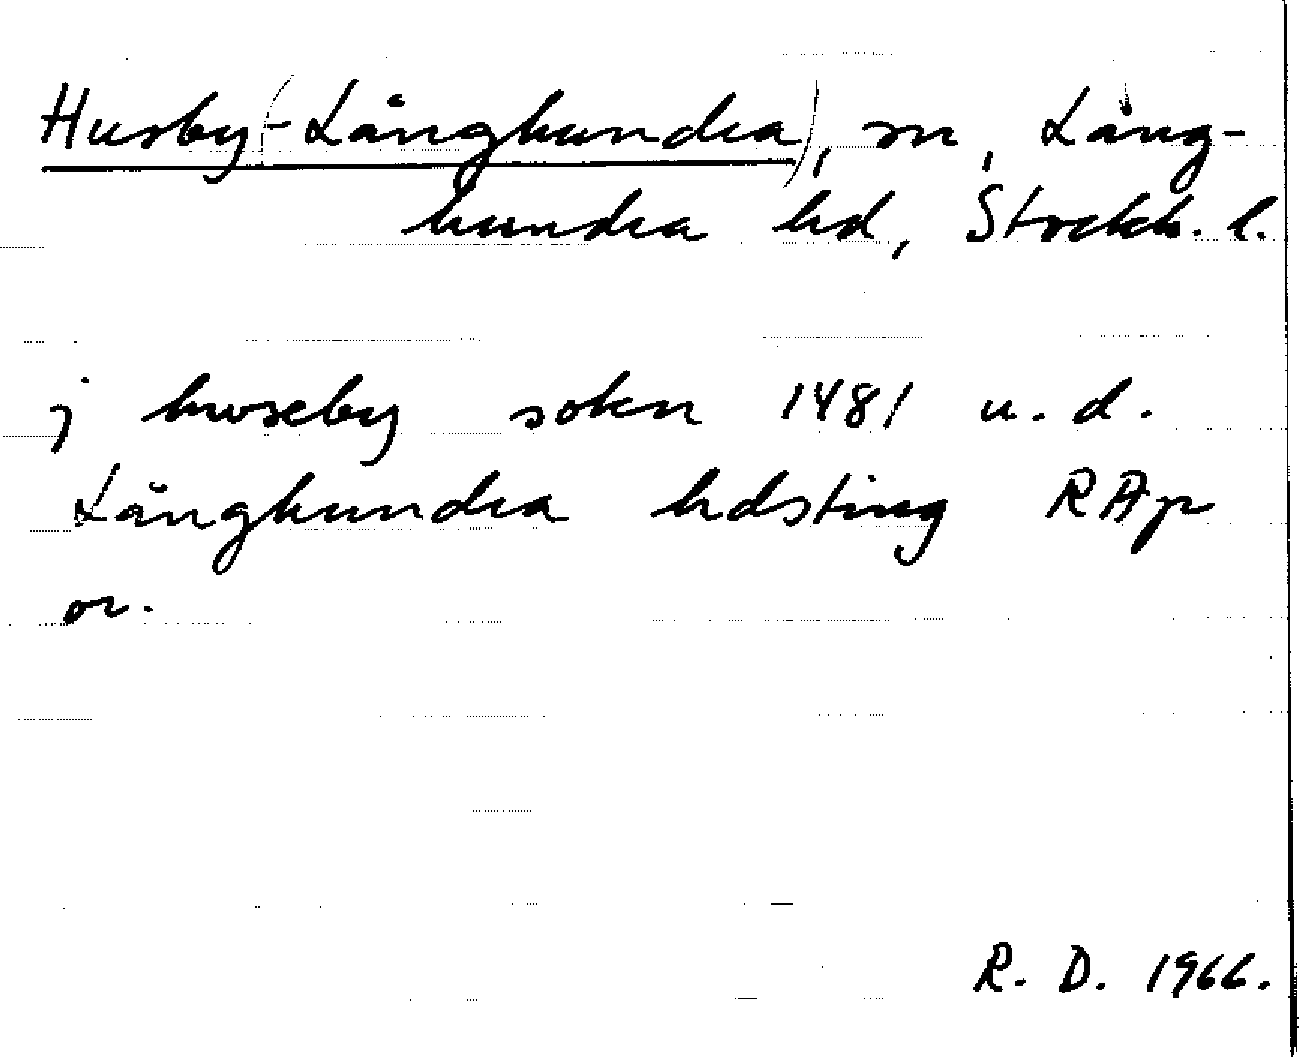 Husby(-Långhundra), sn, Lång-
hundra hd, Stockh. l.
j hwseby sokn 1481 u. d.
Långhundra hdsting RAp
or.
R. D. 1966.